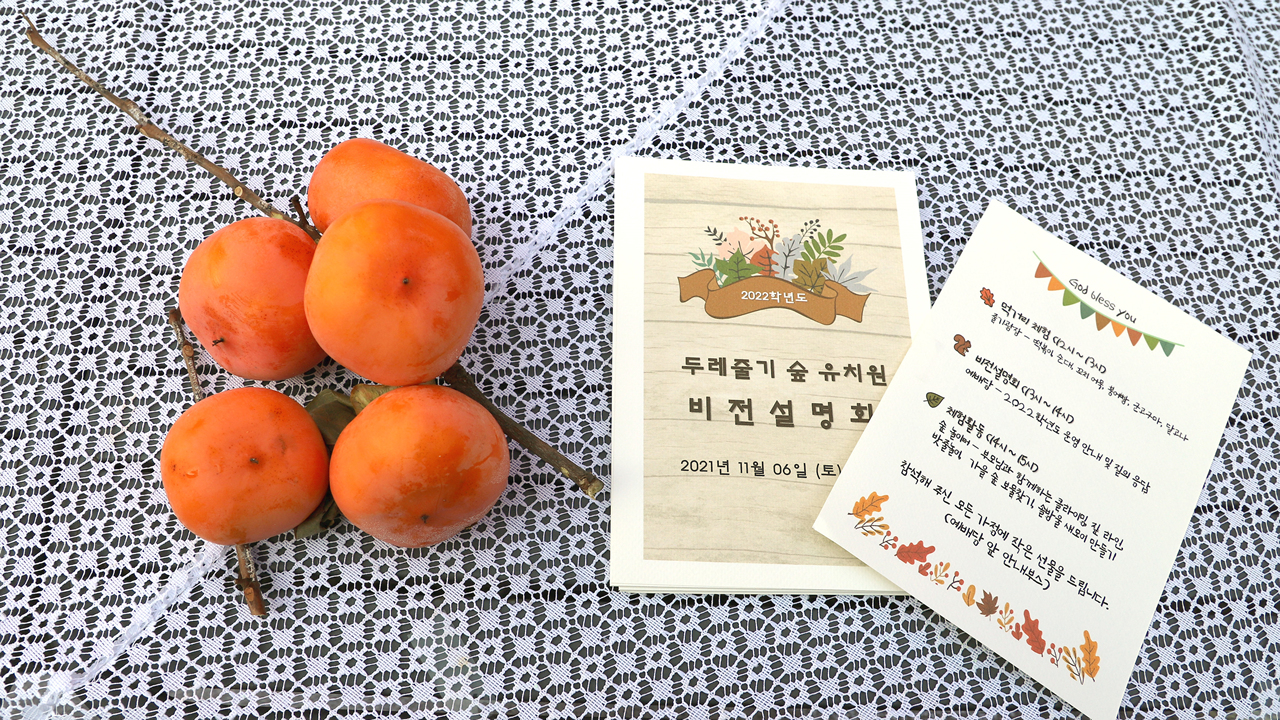 2022학년도
두레줄기 숲 유치원
비전설명회
2021년 11월 06일 (토)
God bless you
먹거리 체험 (12시 ~ 13시)
줄기광장 - 떡볶이, 순대, 꼬치 어묵, 붕어빵, 군고구마, 달고나
비전설명회 (13시 ~ 14시)
예배당 - 2022학년도 운영 안내 및 질의 응답
체험활동 (14시 ~ 15시)
숲 놀이터 - 부모님과 함께하는 클라이밍, 짚 라인,
밧줄놀이, 가을 숲 보물찾기, 솔방울 새모이 만들기
참석해 주신 모든 가정에 작은 선물을 드립니다.
(예배당 앞 안내부스)